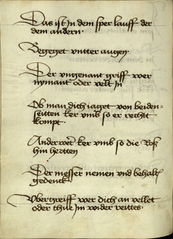 Das ist in dem sper lauff der
dem andern
Begeget vnnter augen
Der vngenant griff wer
nymant oder velt In
Ob man dich iaget von beiden
seitten ker vmb so er recht
kompt
Anderwer ker vmb so die Roß
hin hertten
Der messer nemen vnd behalt
gedenck
Vber greiff wer dich an vellet
oder thue Im wider reittes